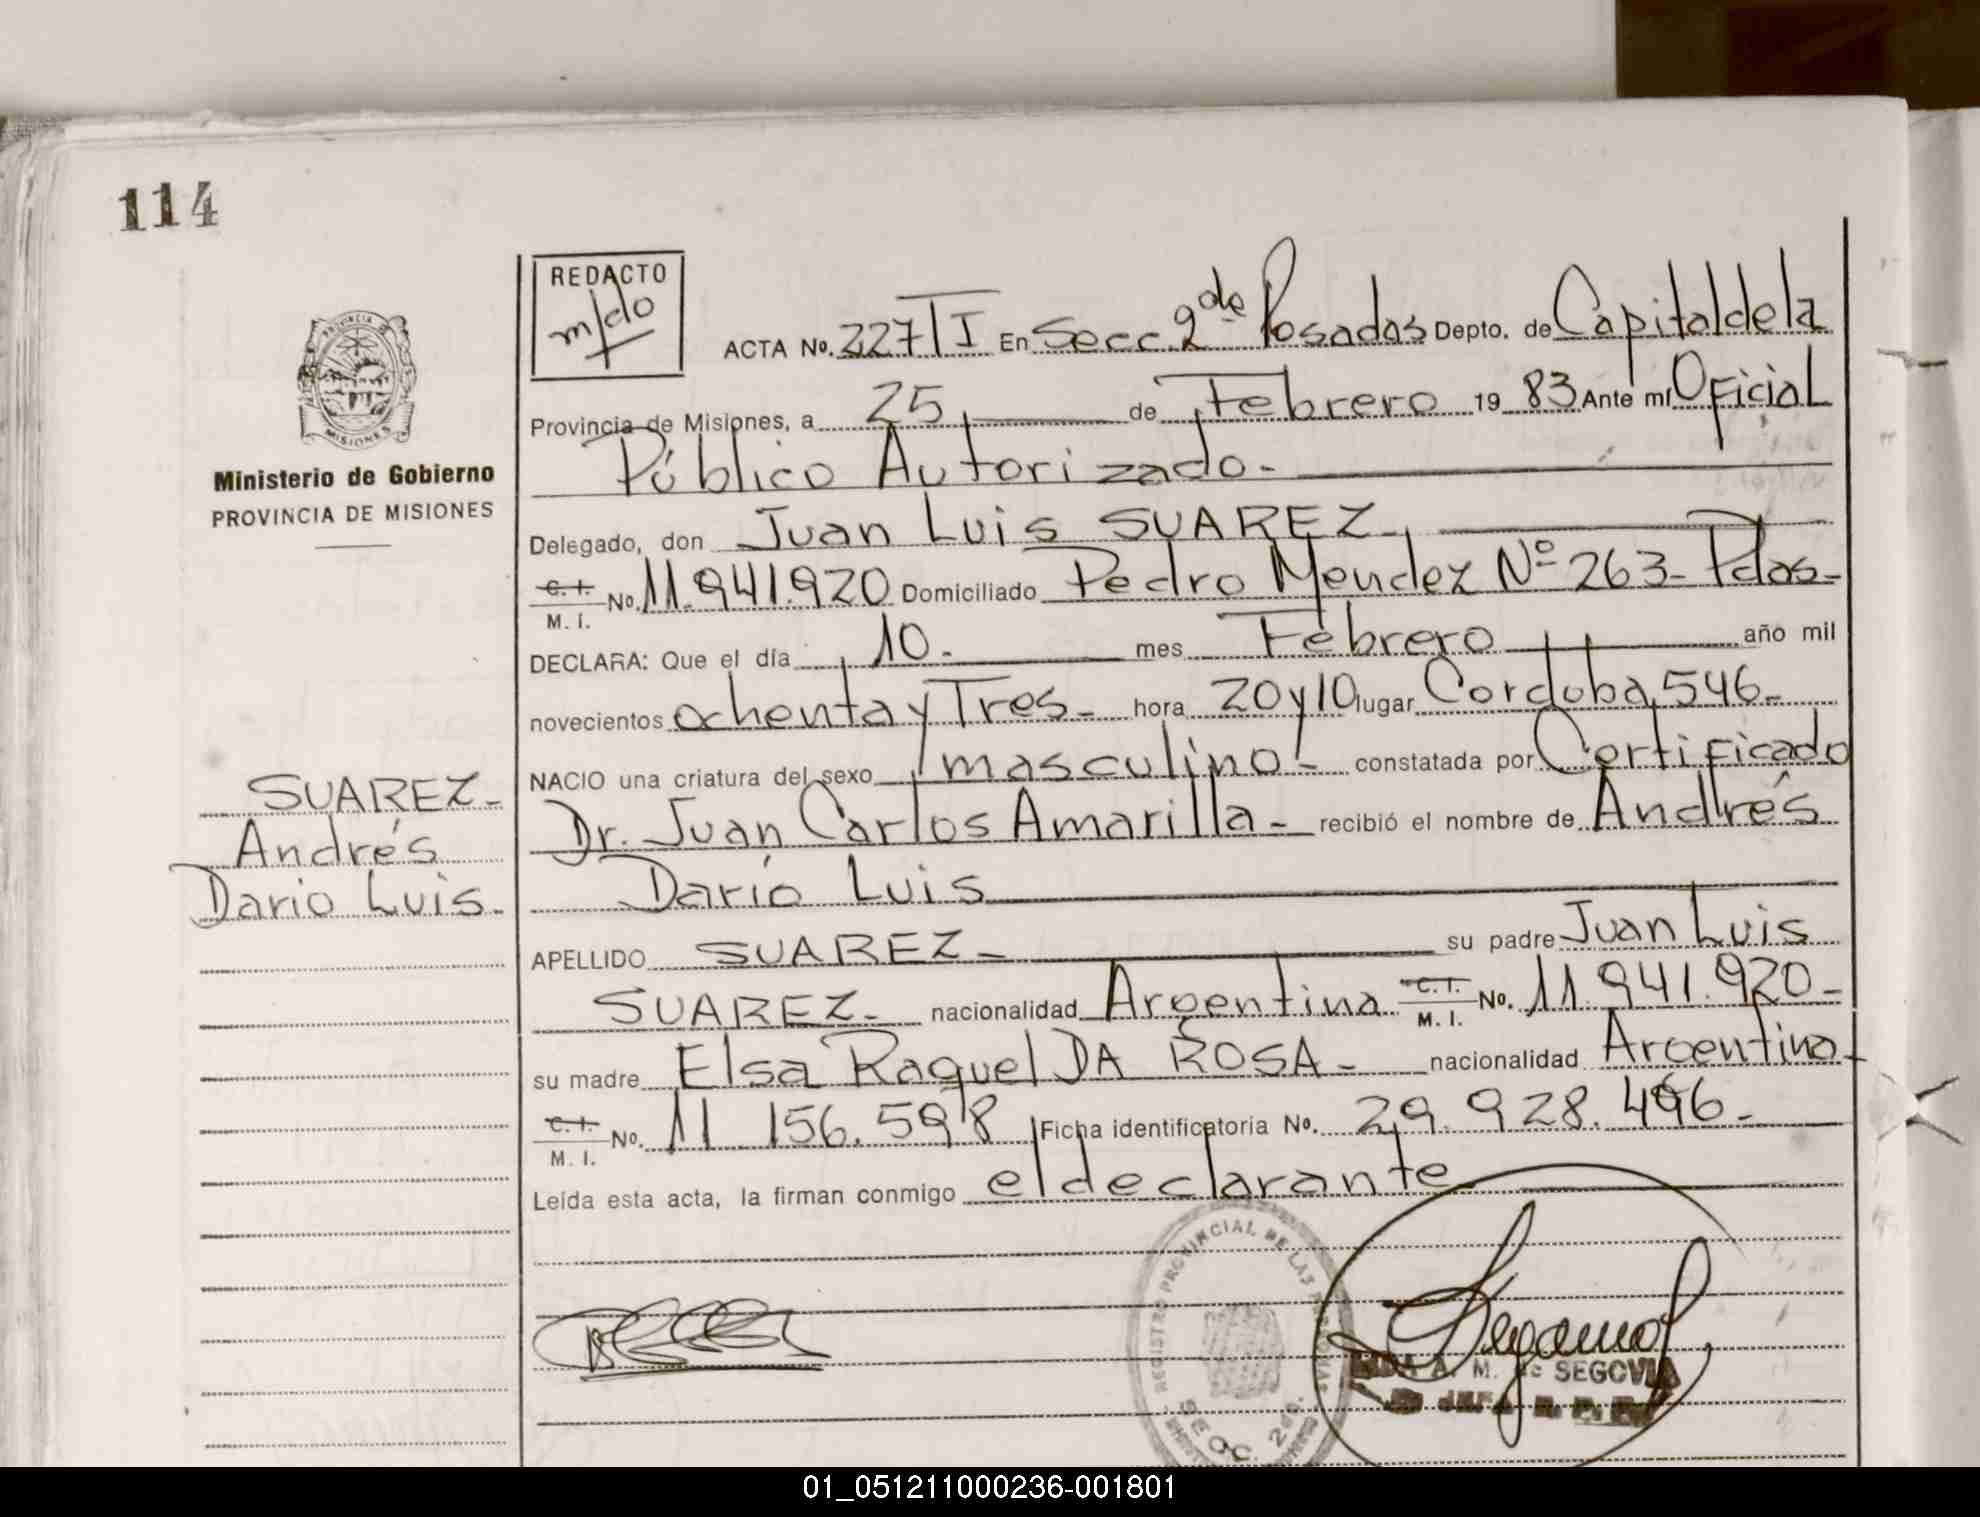 114
REDACTO
m/do
ACTA No. 227/I En Secc 2da Posadas Depto. de Capital de la
Provincia de Misiones, a 25 de Febrero 19 83 Ante mí Oficial
Público Autorizado.-
MISIONES
Ministerio de Gobierno
PROVINCIA DE MISIONES
Delegado, don Juan Luis SUAREZ.
C. I.
M. I. No. 11.941.920 Domiciliado Pedro Mendez Nº 263- Pdas-
DECLARA: Que el día 10.- mes Febrero año mil
novecientos ochenta y Tres- hora 20 y 10 lugar Cordoba 546-
NACIO una criatura del sexo masculino- constatada por Certificado
Dr. Juan Carlos Amarilla- recibió el nombre de Andrés
Darío Luis
SUAREZ-
Andrés
Dario Luis.
APELLIDO SUAREZ- su padre Juan Luis
SUAREZ- nacionalidad Argentina C. I.
M. I. No. 11.941.920-
su madre Elsa Raquel DA ROSA- nacionalidad Argentina-
C. I.
M. I. No. 11 156.598 Ficha identificatoria No. 29.928.496-
Leída esta acta, la firman conmigo el declarante
REGISTRO PROVINCIAL DE LAS
SECC. 2da.
A. M. de SEGOVIA
01_051211000236-001801